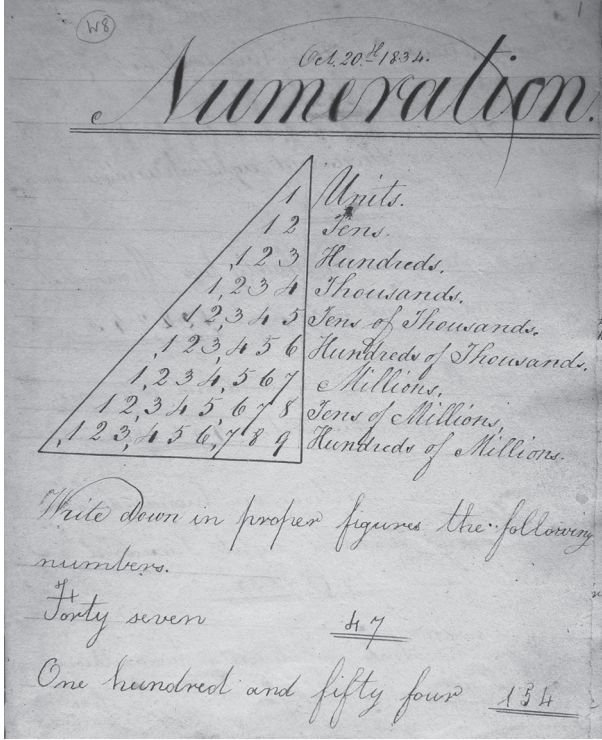 W8
1
Oct. 20.th 1834.
Numeration.
1 Units.
1 2 Tens.
,1 2 3 Hundreds.
1,2 3 4 Thousands.
1 2,3 4 5 Tens of Thousands.
,1 2 3,4 5 6 Hundreds of Thousands.
1,2 3 4,5 6 7 Millions.
1 2,3 4 5,6 7 8 Tens of Millions,
,1 2 3,4 5 6,7 8 9 Hundreds of Millions.
Write down in proper figures the following
numbers.
Forty seven 47
One hundred and fifty four 154